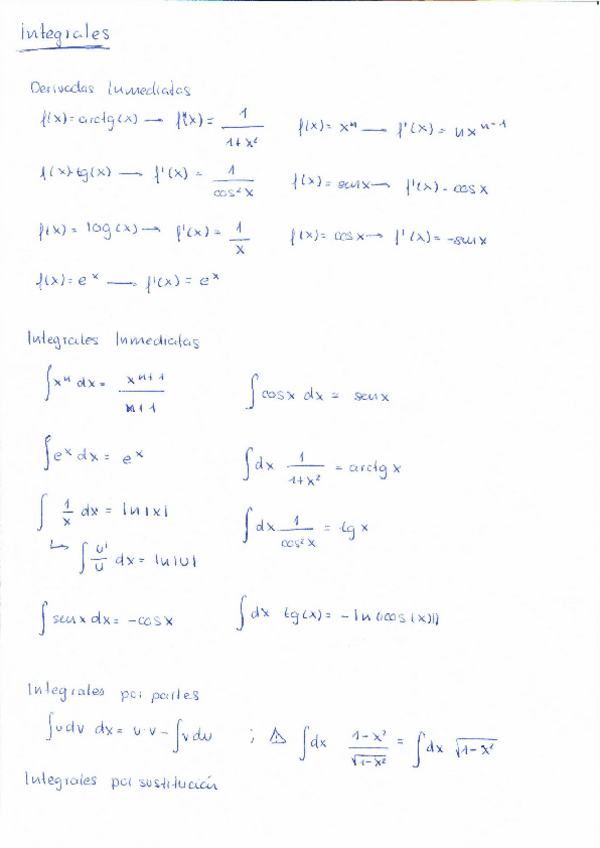 Integrales
Derivadas Inmediatas
f(x)= arctg(x) → f'(x)= 1/(1+x²)
f(x)= xⁿ → f'(x)= nxⁿ⁻¹
f(x)=tg(x) → f'(x) = 1/(cos²x)
f(x)= senx → f'(x) = cosx
f(x)= log(x) → f'(x) = 1/x
f(x)= cosx → f'(x) = -senx
f(x)= eˣ → f'(x) = eˣ
Integrales Inmediatas
∫xⁿ dx = xⁿ⁺¹/(n+1)
∫cosx dx = senx
∫eˣ dx = eˣ
∫dx 1/(1+x²) = arctg x
∫ 1/x dx = ln|x|
∫dx 1/(cos²x) = tg x
↳ ∫ u'/u dx = ln|u|
∫senx dx = -cosx
∫dx tg(x) = -ln(|cos(x)|)
Integrales por partes
∫udv dx = u·v - ∫vdu ; ⚠ ∫dx (1-x²)/√(1-x²) = ∫dx √(1-x²)
Integrales por sustitución